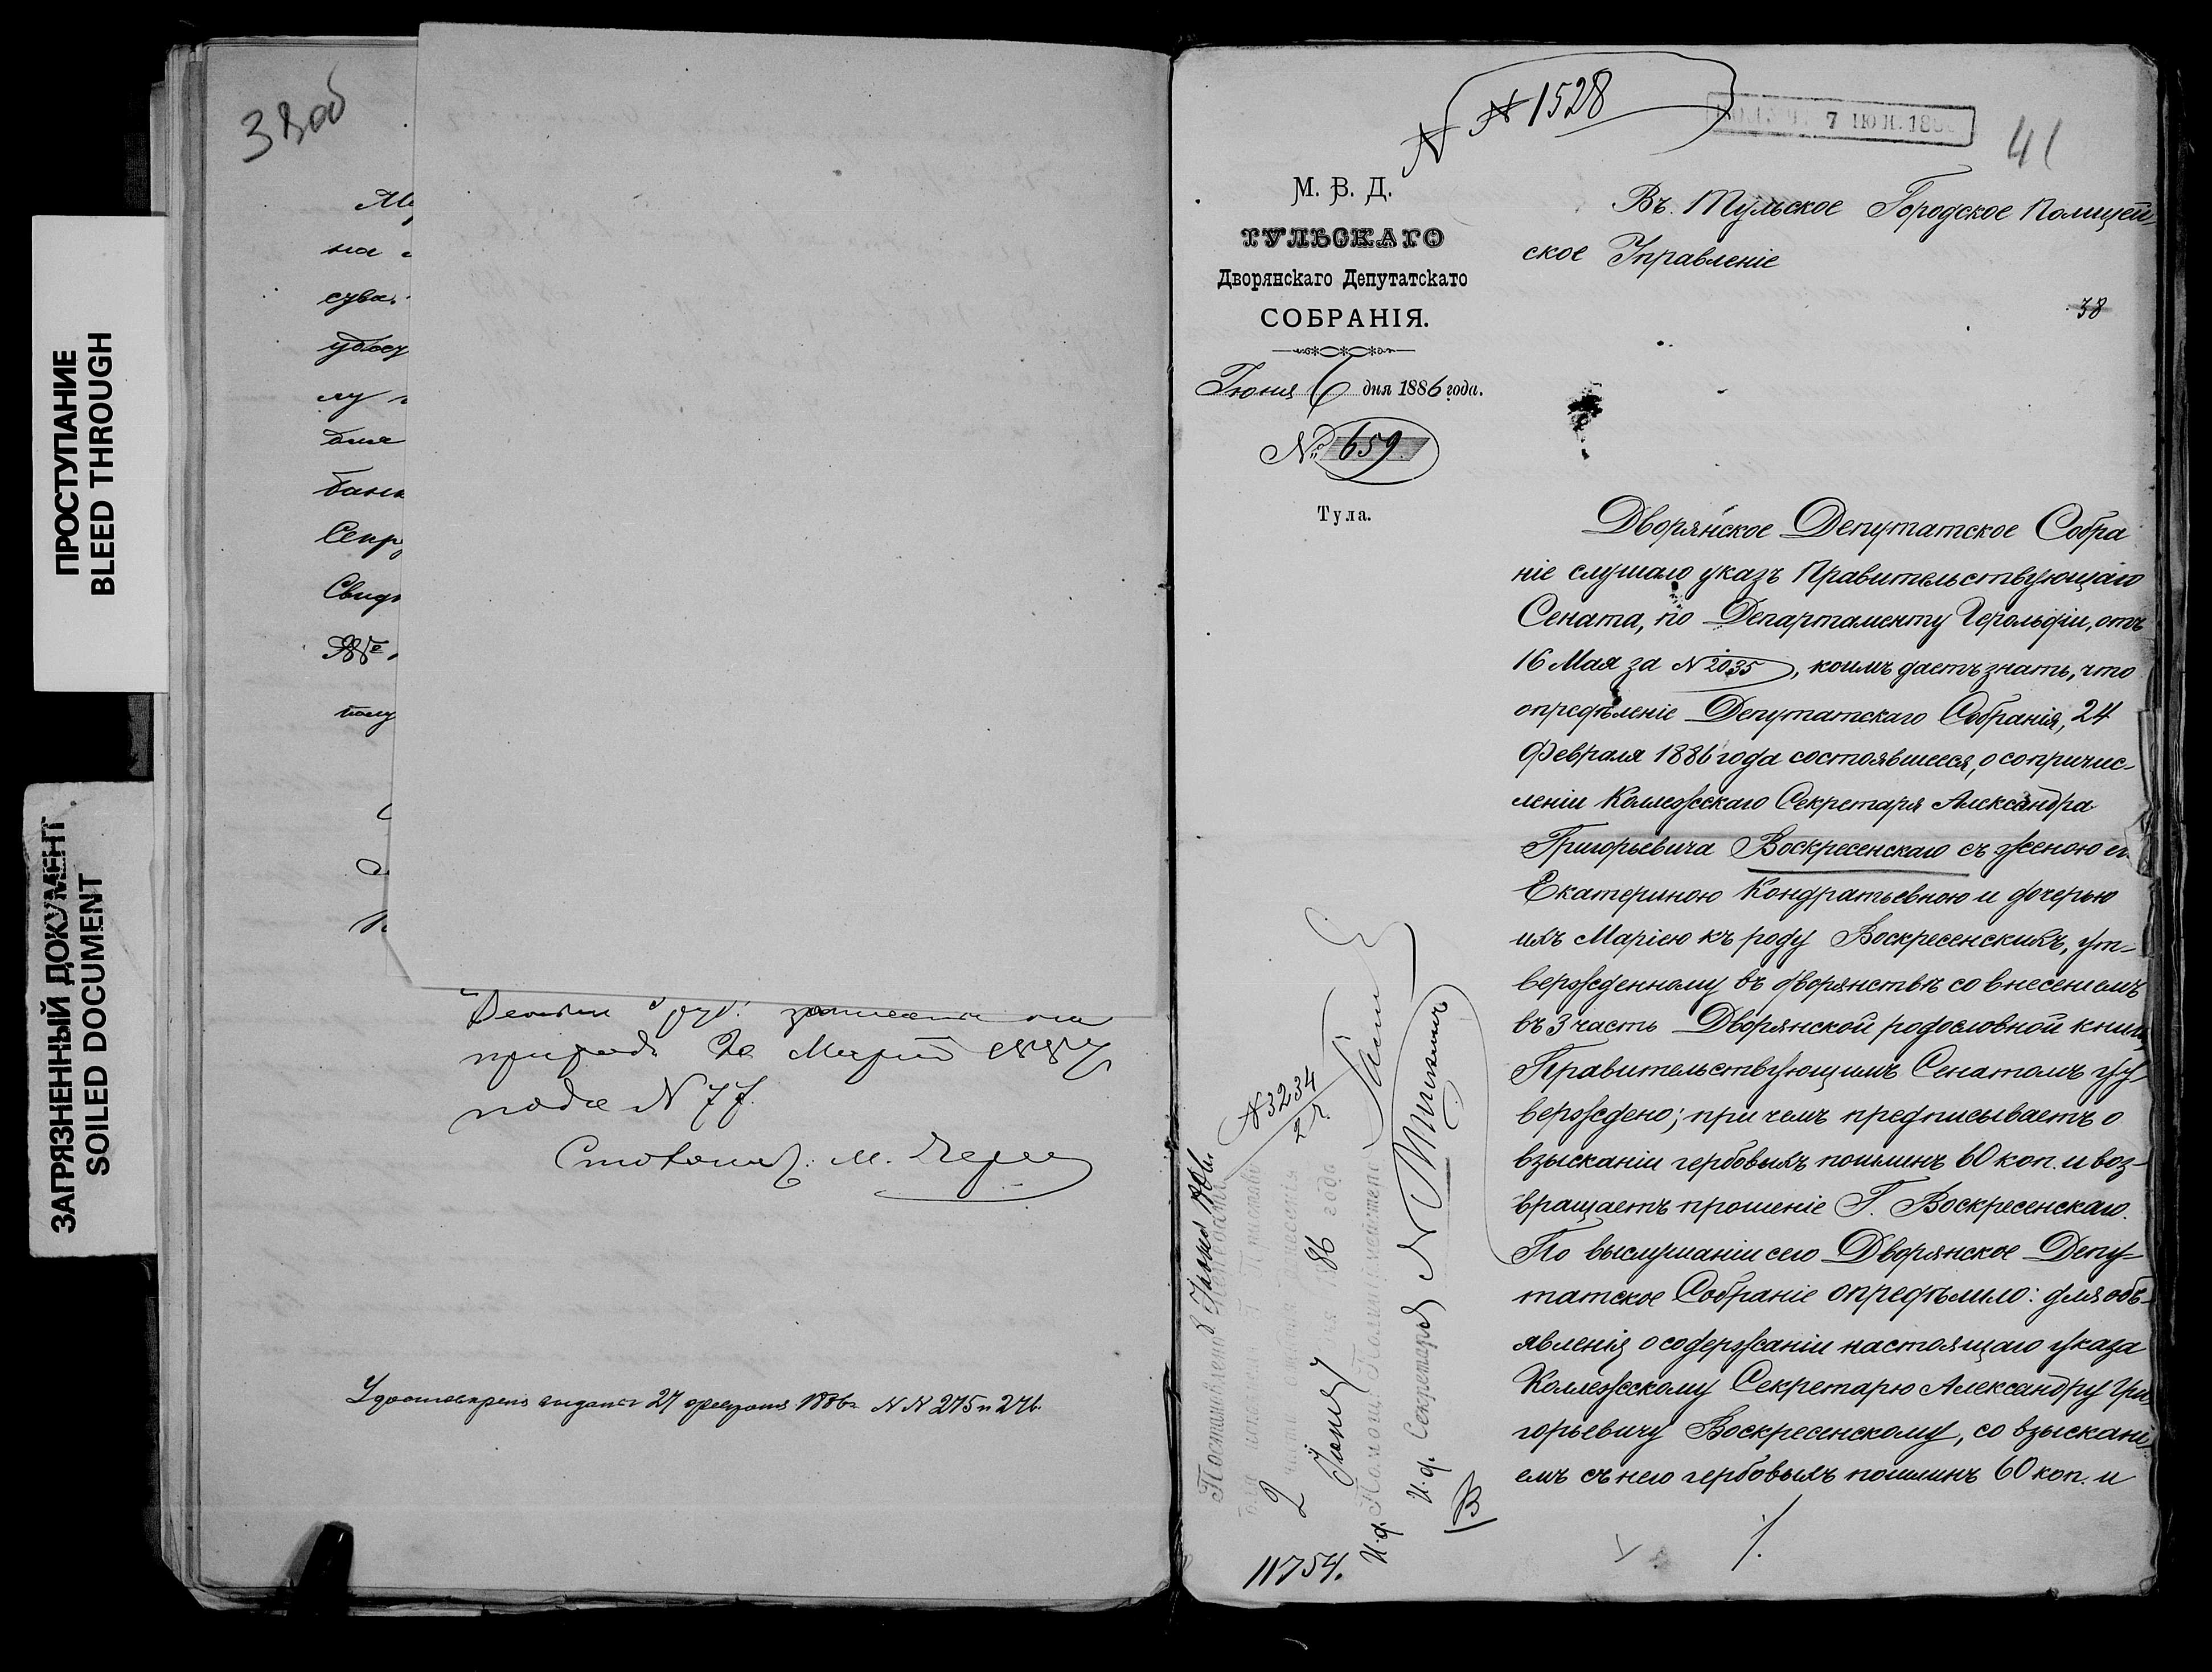 ПРОСТУПАНИЕ
BLEED THROUGH
ЗАГРЯЗНЕННЫЙ ДОКУМЕНТ
SOILED DOCUMENT
38 об
на
лу
банк
Секр
Свид
приходъ 20 Марта 1887
года N 77
М.
выданы 27 февраля 1886 г. N N 275 и 276.
N 1528
7 ІЮН. 188
41
М. В. Д.
ТУЛЬСКАГО
Дворянскаго Депутатскаго
СОБРАНІЯ.
Іюня 6 дня 1886 года.
№ 659
Тула.
Въ Тульское Городское Полицей-
ское Управленіе
38
Дворянское Депутатское Собра
ніе слушало указъ Правительствующаго
Сената, по Департаменту Герольдіи, отъ
16 Мая за N 2035, коимъ даетъ знать, что
опредѣленіе Депутатскаго Собранія, 24
Февраля 1886 года состоявшееся, о сопричис-
леніи Коллежскаго Секретаря Александра
Григорьевича Воскресенскаго съ женою его
Екатериною Кондратьевною и дочерью
ихъ Маріею къ роду Воскресенскихъ, ут-
вержденному въ дворянствѣ со внесеніемъ
въ 3 часть Дворянской родословной книги,
Правительствующимъ Сенатомъ ут-
верждено; при чемъ предписываетъ о
взысканіи гербовыхъ пошлинъ 60 коп. и воз-
вращаетъ прошеніе Г. Воскресенскаго.
По выслушаніи сего Дворянское Депу-
татское Собраніе опредѣлило: для объ-
явленія о содержаніи настоящаго указа
Коллежскому Секретарю Александру Гри-
горьевичу Воскресенскому, со взыскані-
емъ съ него гербовыхъ пошлинъ 60 коп. и
Постановлено 8 Іюня 1886
N 3234
2 части
Іюня 86 года
И. д. Помощ. Полицеймейстера
И. д. Секретаря
11754.